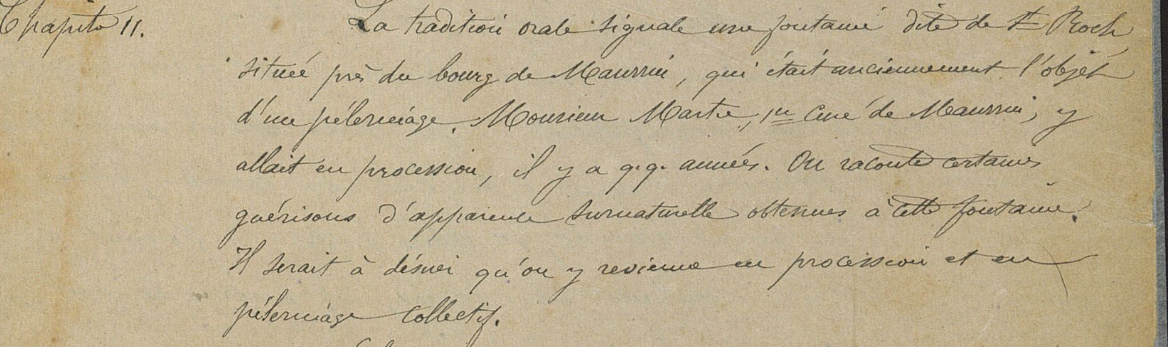 Chapitre 11.
La tradition orale signale une fontaine dite de St Roch,
située près du bourg de Maurrin, qui était anciennement l'objet
d'un pélerinage. Monsieur Martre, 1er curé de Maurrin, y
allait en procession, il y a q.q. années. On raconte certaines
guérisons d'apparence surnaturelle obtenues à cette fontaine.
Il serait à désirer qu'on y revienne en procession et en
pélerinage collectif.